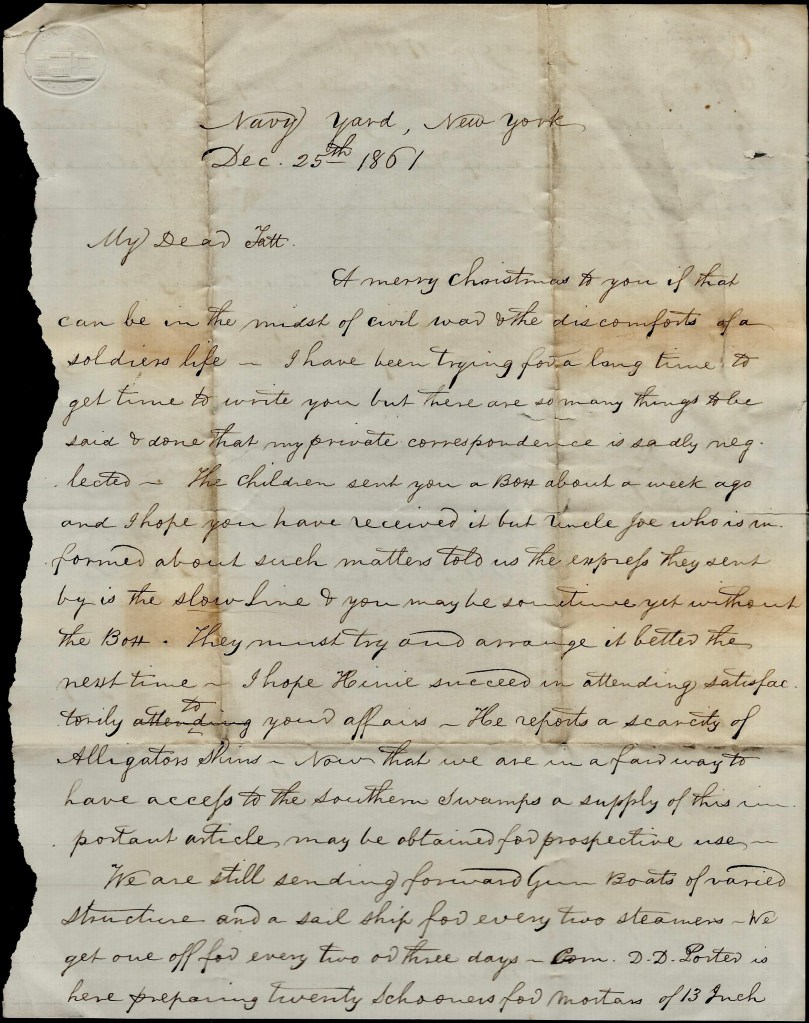 Navy Yard, New York
Dec. 25th 1861
My Dear Tatt.
A merry Christmas to you if that
can be in the midst of civil war & the discomforts of a
soldiers life – I have been trying for a long time to
get time to write you but there are so many things to be
said & done that my private correspondence is sadly neg-
lected – The children sent you a Box about a week ago
and I hope you have received it but Uncle Joe who is in-
formed about such matters told us the express they sent
by is the slow line & you may be sometime yet without
the Box. They must try and arrange it better the
next time – I hope Hinie succeed in attending satisfac-
torily attending to your affairs – He reports a scarcity of
Alligators Skins – Now that we are in a fair way to
have access to the Southern Swamps a supply of this im-
portant article may be obtained for prospective use –
We are still sending forward Gun Boats of varied
structure and a sail ship for every two steamers – We
get one off for every two or three days – Com. D.D. Porter is
here preparing twenty Schooners for Mortars of 13 Inch